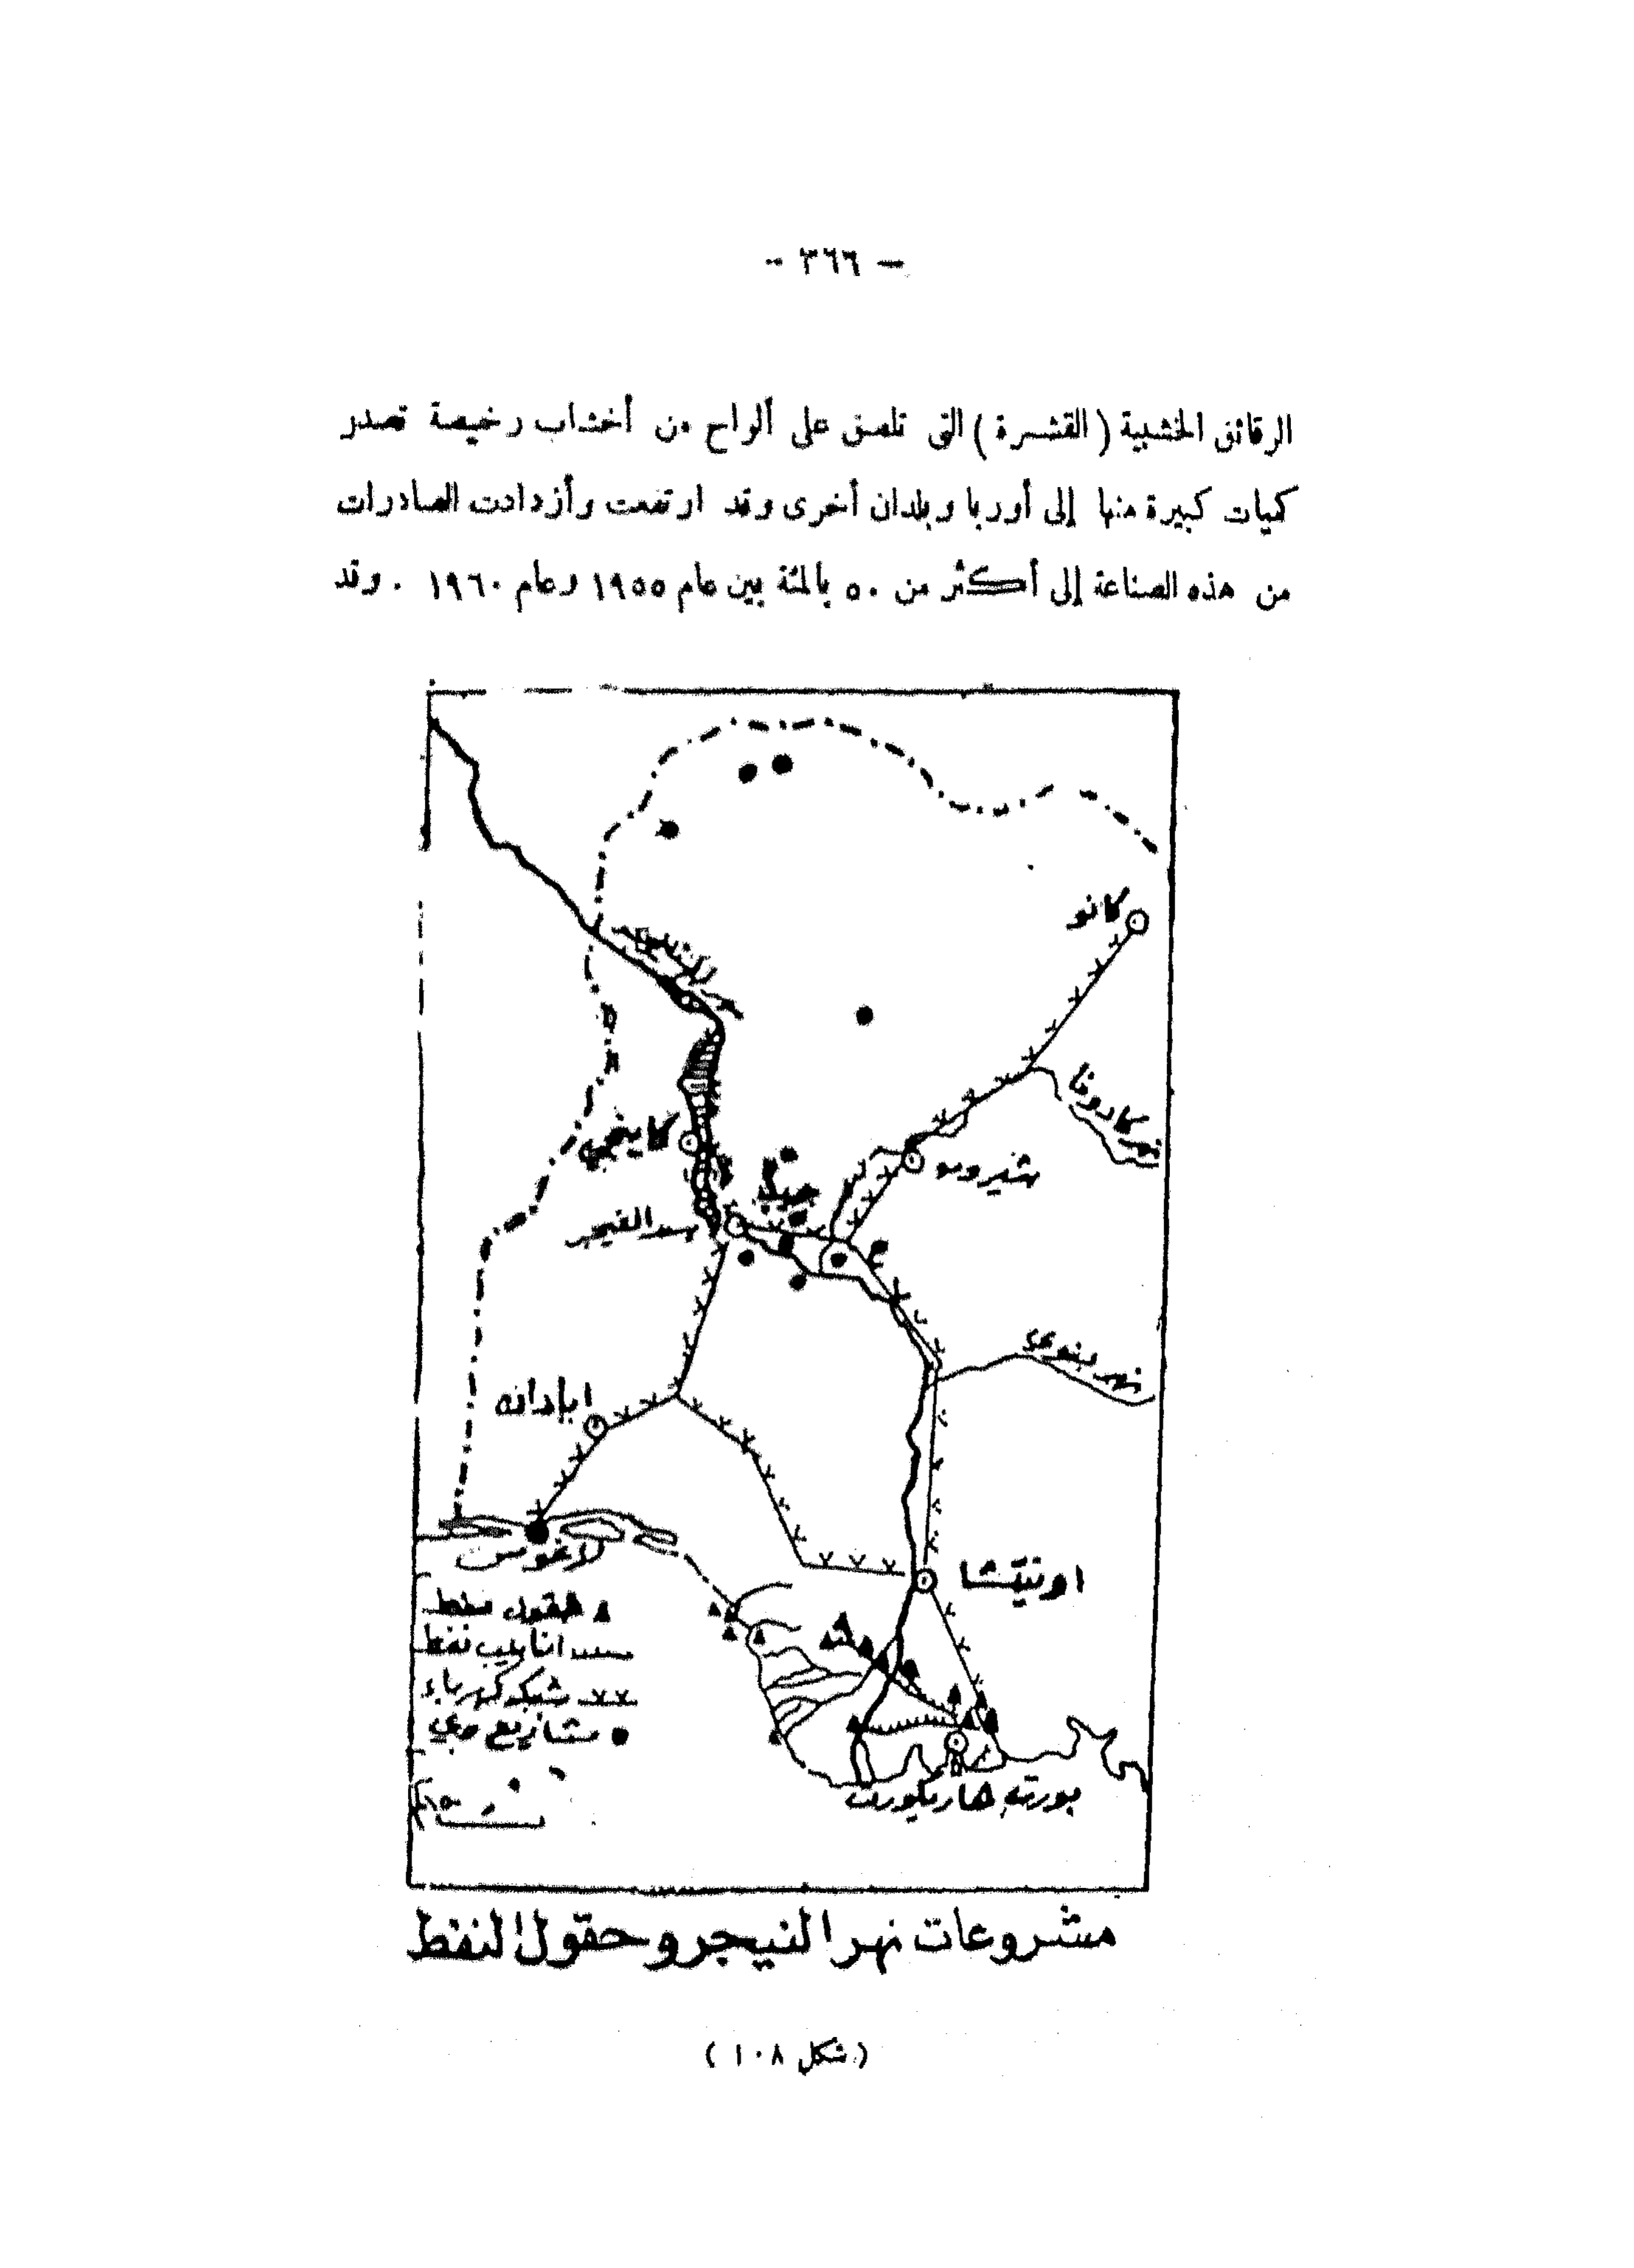 — ٣٦٦ —
الرقائق الخشبية ( القشرة ) التى تلصق على ألواح من أخشاب رخيصة تصدر
كميات كبيرة منها إلى أوربا وبلدان أخرى وقد ارتفعت وأزدادت الصادرات
من هذه الصناعة إلى أكثر من ٥٠ بالمئة بين عام ١٩٥٥ وعام ١٩٦٠ . وقد
كانو
نهر كادونا
كاينجي
شيرورو
جيبا
سد النيجر
نهر بنوي
ابادان
لاغوس
اونيتشا
حقول نفط
انابيب نفط
شبكة كهرباء
مشاريع ري
بورت هاركورت
مشروعات نهر النيجر وحقول النفط
( شكل ١٠٨ )